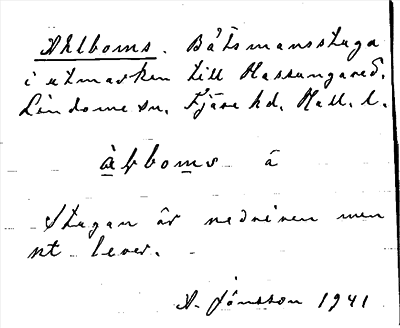 Ahlboms. Båtsmansstuga
i utmarken till Hassungared.
Lindome sn. Fjäre hd. Hall. l.
àlboms â
Stugan är nedriven men
nt lever.
A. Jönsson 1941